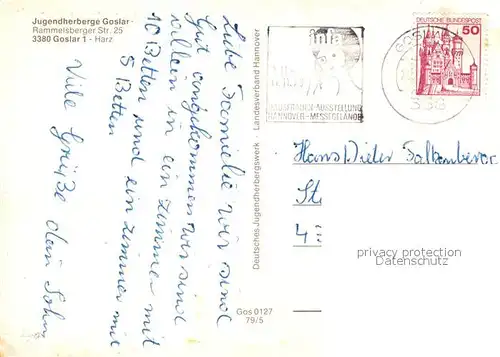 Jugendherberge Goslar
Rammelsberger Str. 25
3380 Goslar 1 - Harz
Liebe Familie wir sind
Gut angekommen wir sind
allein in ein Zimmer mit
10 Betten und ein Zimmer mit
5 Betten
Viele Grüße dein Sohn
Deutsches Jugendherbergswerk · Landesverband Hannover
Gos 0127
79/5
AUSSTELLUNG
HANNOVER-MESSEGELÄNDE
GOSLAR
338
DEUTSCHE BUNDESPOST
50
Hans Dieter
St
4
privacy protection
Datenschutz